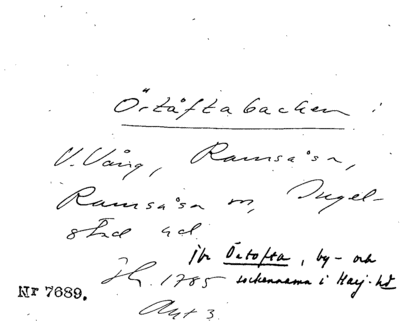 Örtåftabacken i
V. Vång, Ramsåsa,
Ramsåsa sn, Ingel-
stad hd.
jfr Örtofta, by- och
sockennamn i Harj. hd
Sk. 1785
Akt 3
Nr 7689.